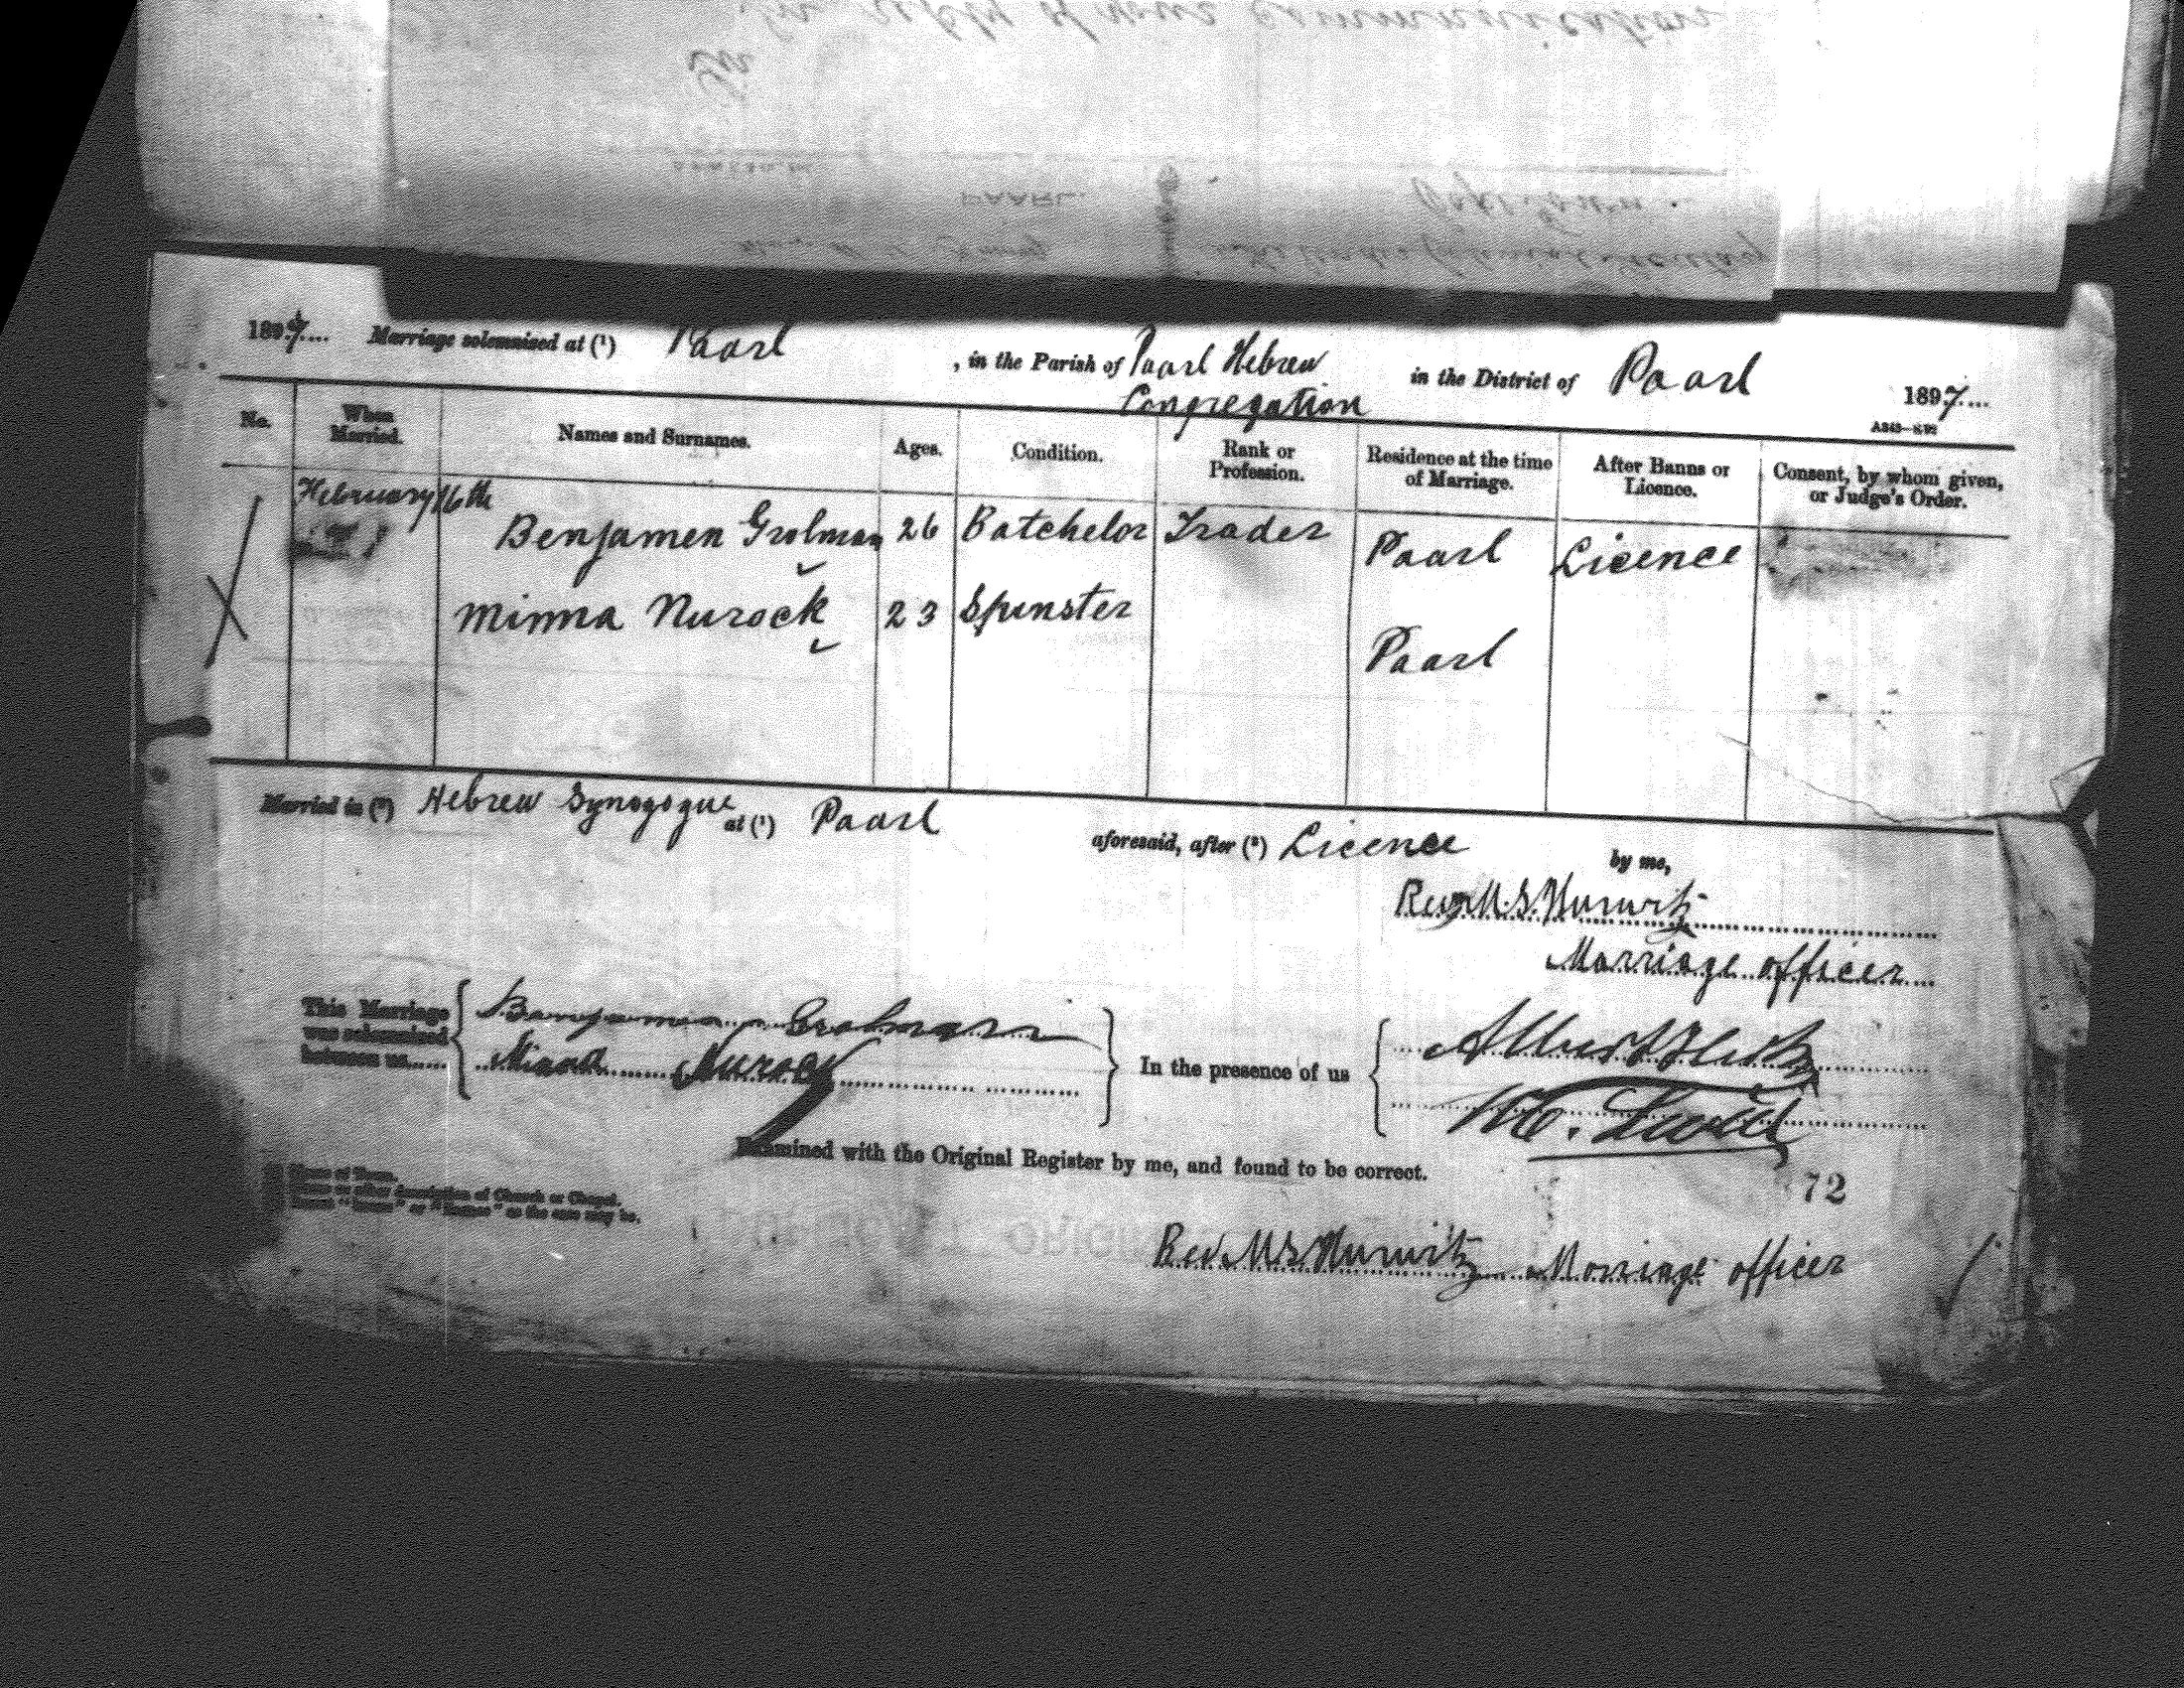 In reply of your communication
Sir
PAARL.
Cape Town.
The Under Colonial Secretary
1897.... Marriage solemnized at (¹) Paarl , in the Parish of Paarl Hebrew Congregation in the District of Paarl 1897....
No. When Married. Names and Surnames. Ages. Condition. Rank or Profession. Residence at the time of Marriage. After Banns or Licence. Consent, by whom given, or Judge's Order.
February 16th Benjamen Grolman 26 Batchelor Trader Paarl Licence
Minna Nurock 23 Spinster Paarl
Married in (²) Hebrew Synogogue at (¹) Paarl aforesaid, after (³) Licence by me,
Rev M.S. Hurwitz
Marriage officer
This Marriage was solemnized between us...... Benjamen Grolmann
Minna Nurock
In the presence of us
Examined with the Original Register by me, and found to be correct.
Name of Town.
Name or other description of Church or Chapel.
Insert "Licence" or "Banns" as the case may be.
72
Rev. M S Hurwitz Marriage officer